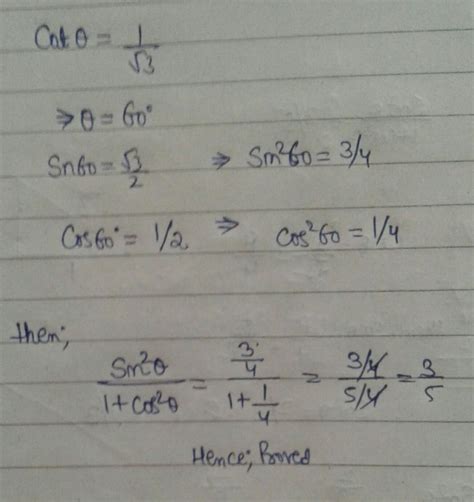 Cot θ = 1/√3
⇒ θ = 60°
Sn60 = √3/2 ⇒ Sm²60 = 3/4
Cos60° = 1/2 ⇒ Cos²60 = 1/4
then;
Sm²θ/1+Cos²θ = 3/4/1+1/4 = 3/4/5/4 = 3/5
Hence; Proved